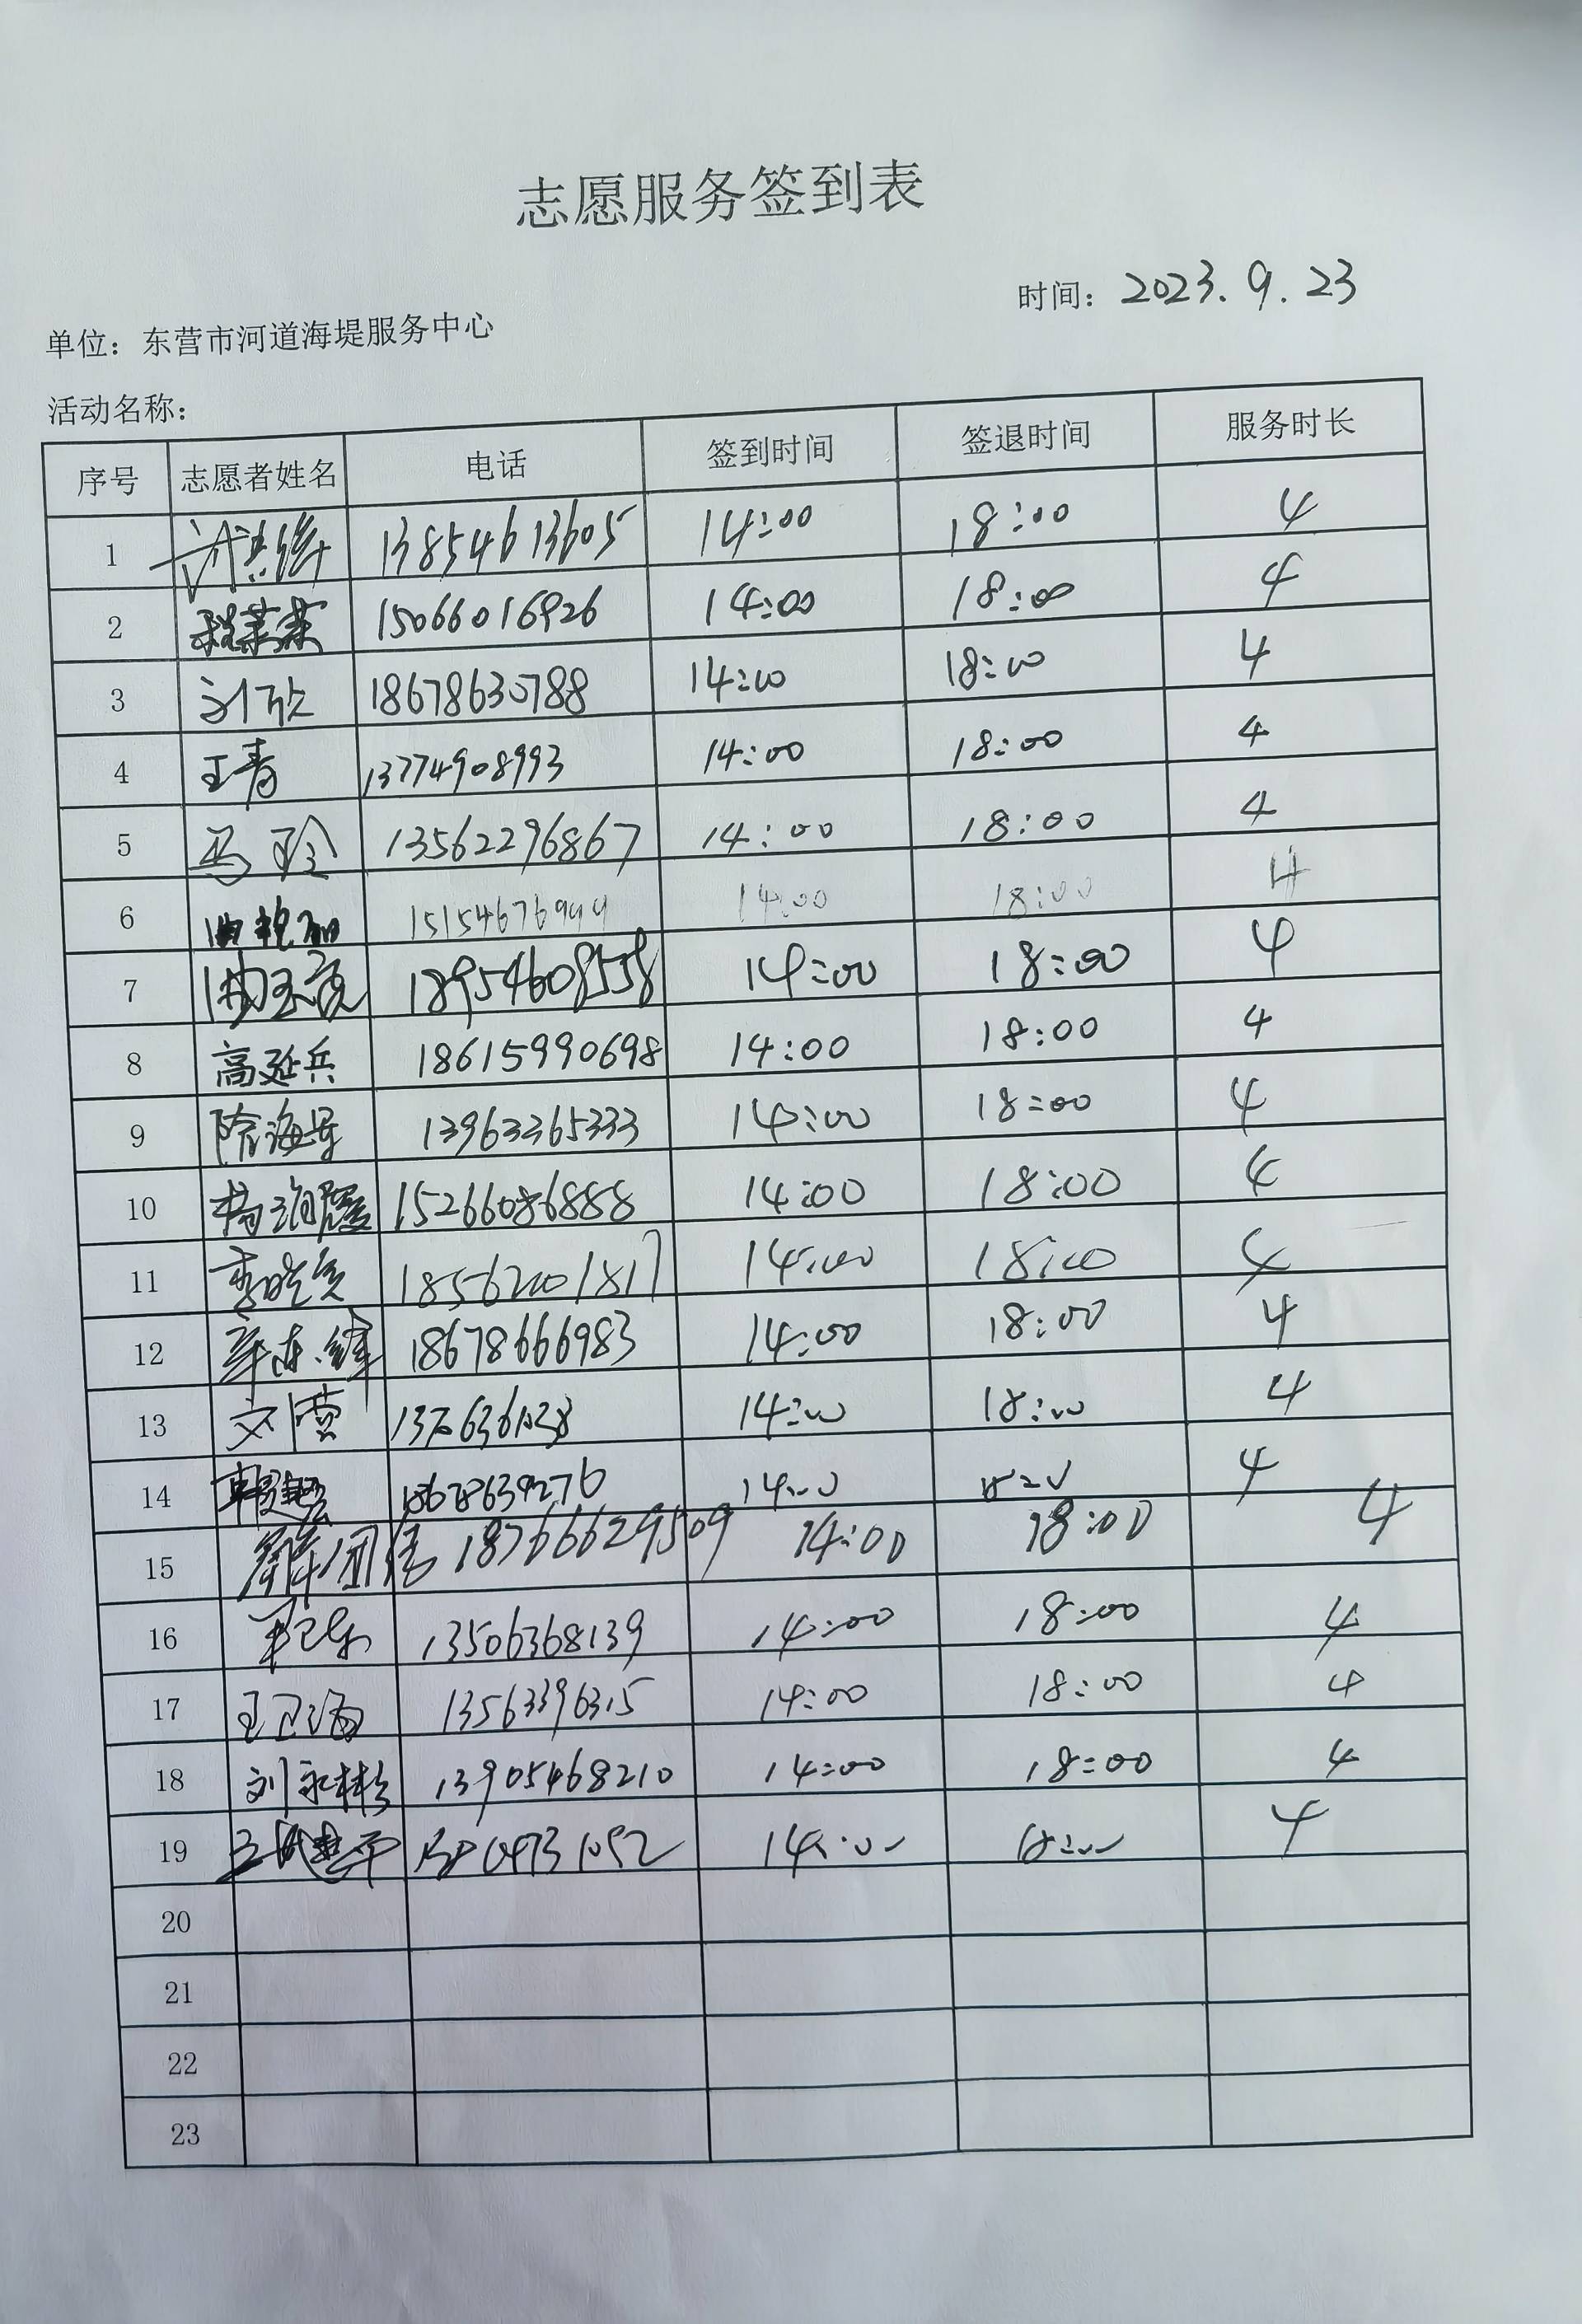 志愿服务签到表
时间： 2023.9.23
单位：东营市河道海堤服务中心
活动名称：
序号 志愿者姓名 电话 签到时间 签退时间 服务时长
1 13854613605 14:00 18:00 4
2 15066016926 14:00 18:00 4
3 刘欣 18678630788 14:00 18:00 4
4 王青 13774908993 14:00 18:00 4
5 马玲 13562296867 14:00 18:00 4
6 曲艳丽 15154676949 14:00 18:00 4
7 18954608558 14:00 18:00 4
8 高延兵 18615990698 14:00 18:00 4
9 13963365333 14:00 18:00 4
10 杨海霞 15266086888 14:00 18:00 4
11 李晓 18562001817 14:00 18:00 4
12 18678666983 14:00 18:00 4
13 文 14:00 18:00 4
14 18678639276 14:00 18:00 4
15 18766629509 14:00 18:00 4
16 13506368139 14:00 18:00 4
17 王卫海 13563396315 14:00 18:00 4
18 刘永彬 13905468210 14:00 18:00 4
19 14:00 18:00 4
20
21
22
23